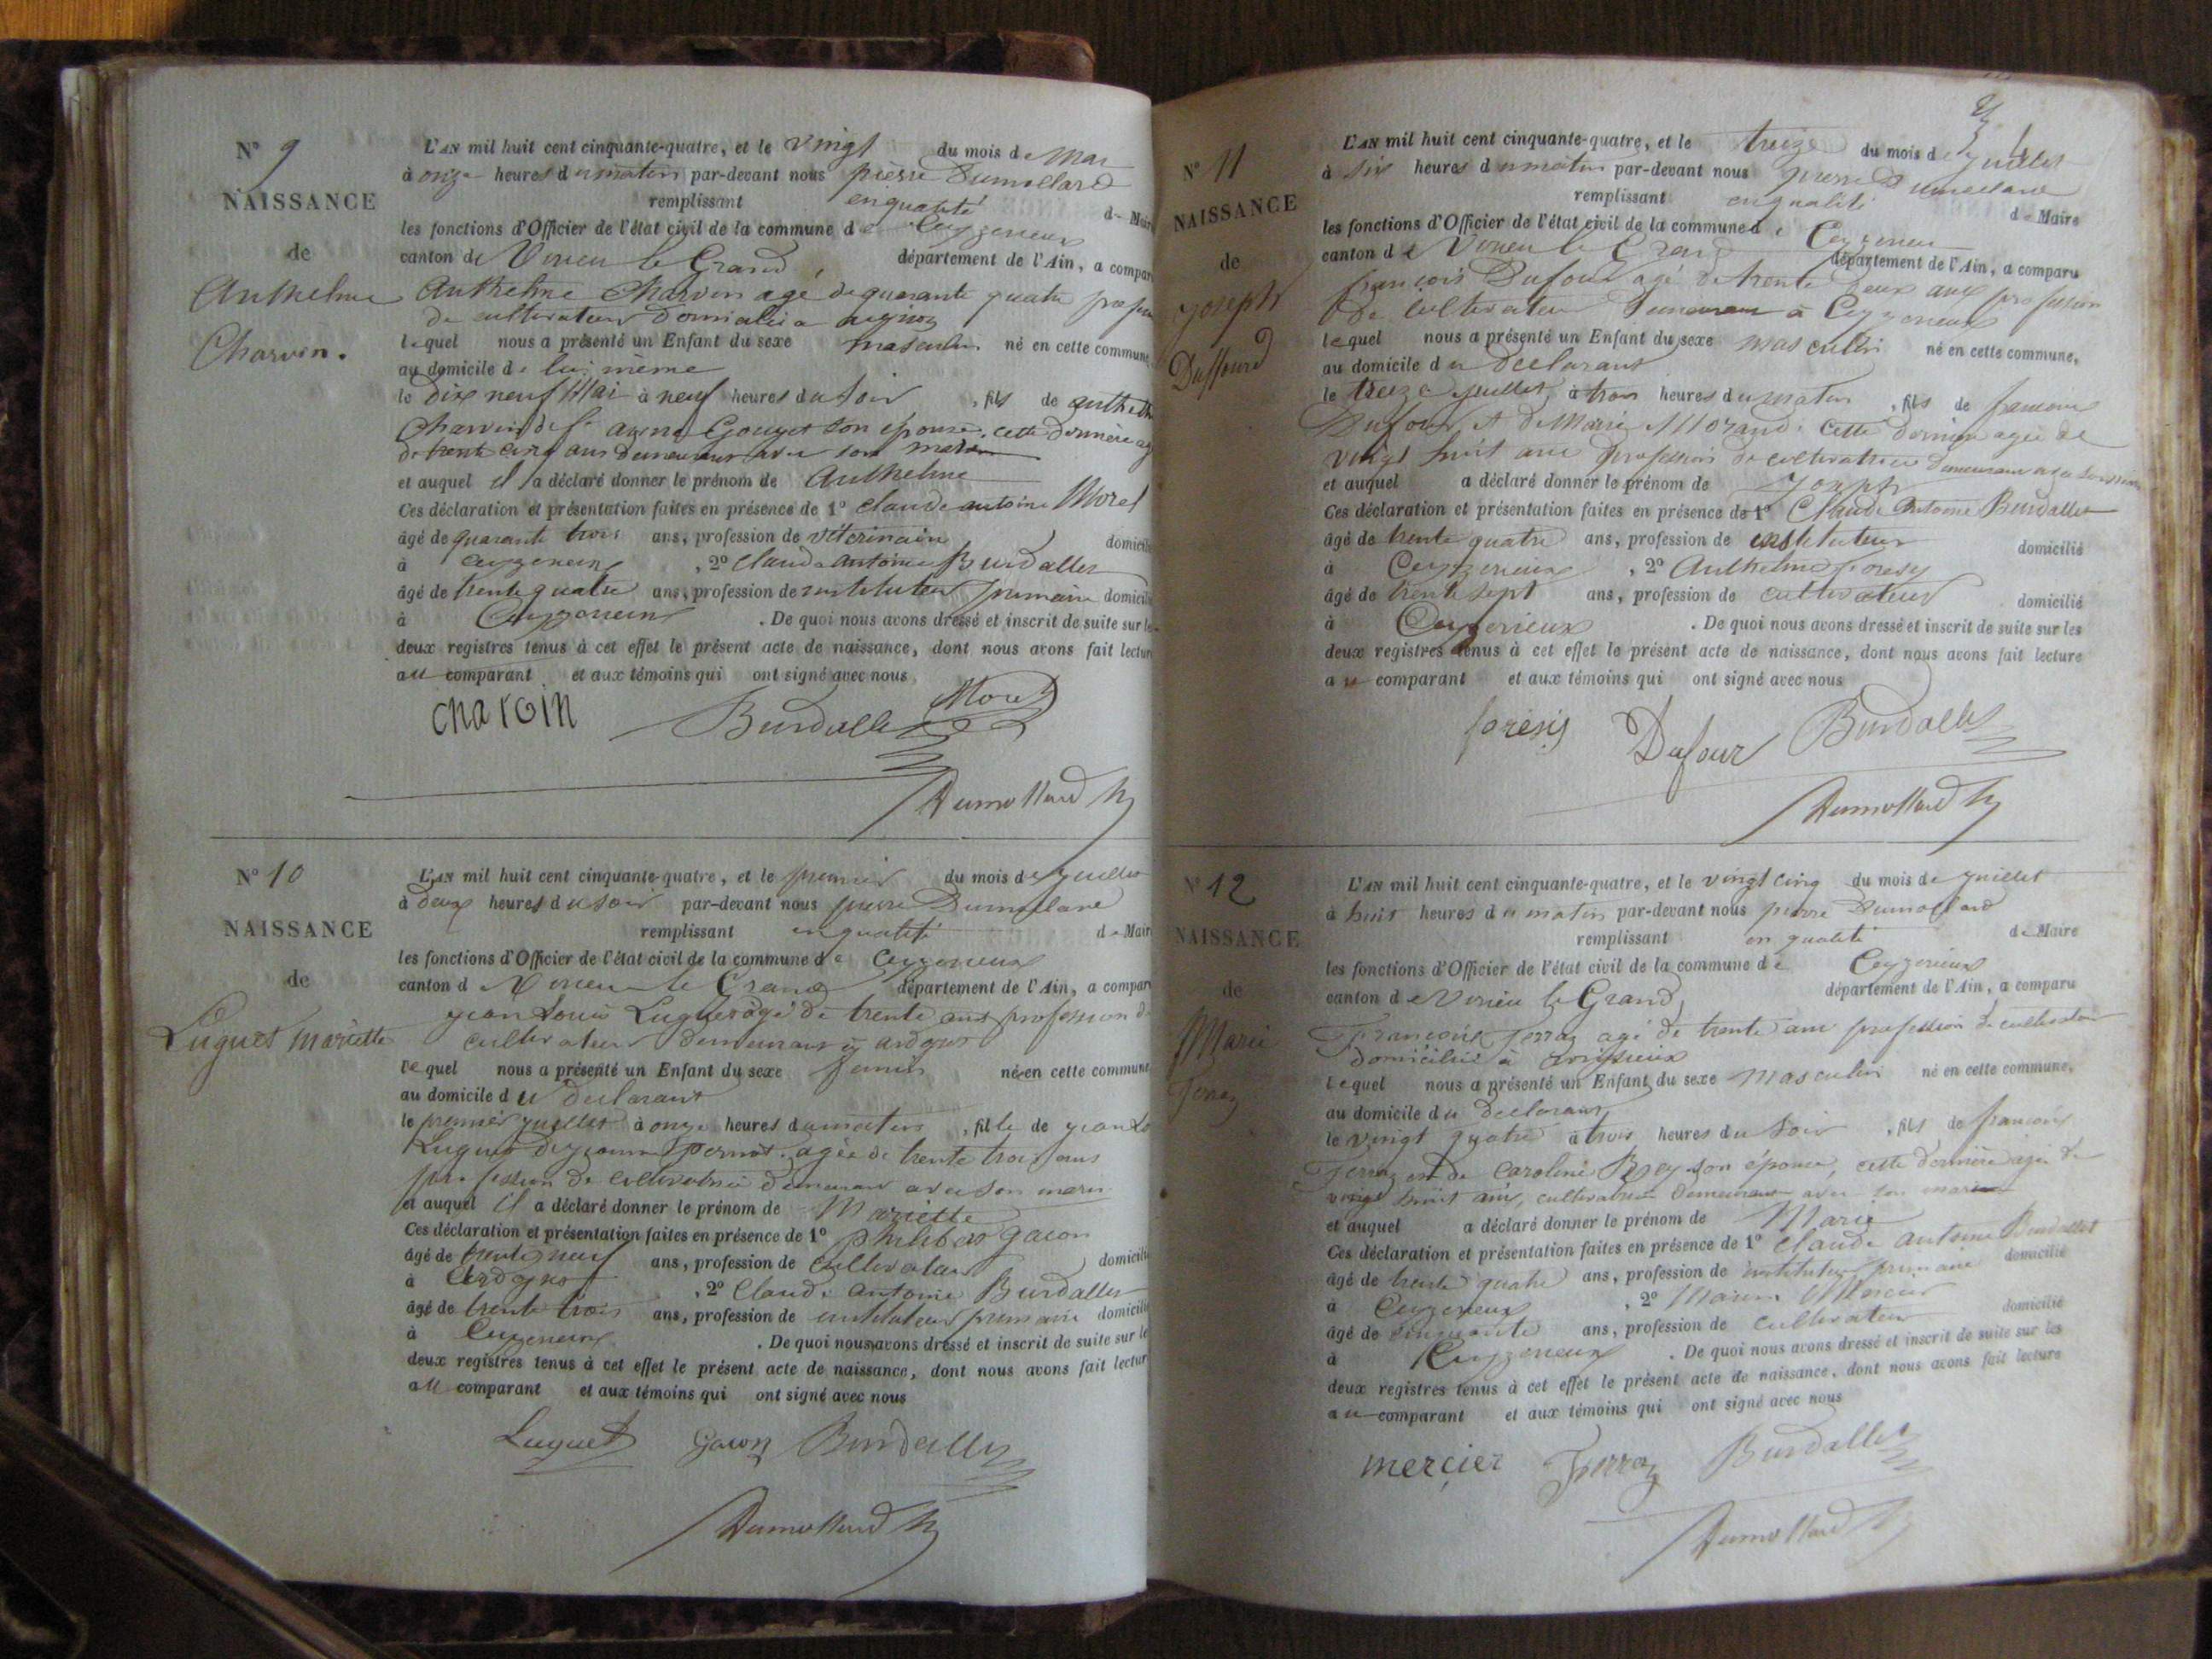 N° 9
NAISSANCE
de
Anthelme
Charvin.
L'AN mil huit cent cinquante-quatre, et le vingt du mois de Mai
à onze heures du matin par-devant nous pierre Dumollard
remplissant en qualité de Maire
les fonctions d'Officier de l'état civil de la commune de Ceyzerieux
canton de Virieu le Grand, département de l'Ain, a comparu
Anthelme Charvin agé de quarante quatre
de cultivateur domicilié a avignon
lequel nous a présenté un Enfant du sexe masculin né en cette commune
au domicile de lui même
le Dix neuf Mai à neuf heures du soir, fils de Anthelme
Charvin de Gouget son épouse, cette dernière
de trente cinq ans demeurant avec son mari
et auquel il a déclaré donner le prénom de Anthelme
Ces déclaration et présentation faites en présence de 1° Claude antoine Morel
âgé de quarante trois ans, profession de vétérinaire domicilié
à Ceyzerieux, 2° Claude antoine Burdallet
âgé de trente quatre ans, profession de instituteur primaire domicilié
à Ceyzerieux. De quoi nous avons dressé et inscrit de suite sur les
deux registres tenus à cet effet le présent acte de naissance, dont nous avons fait lecture
au comparant et aux témoins qui ont signé avec nous
Charvin Burdallet Morel
Dumollard
N° 10
NAISSANCE
de
Luguet mariette
L'AN mil huit cent cinquante-quatre, et le premier du mois de juillet
à deux heures du soir par-devant nous pierre Dumollard
remplissant en qualité de Maire
les fonctions d'Officier de l'état civil de la commune de Ceyzerieux
canton de Virieu le Grand département de l'Ain, a comparu
jean Louis Luguet agé de trente ans profession de
cultivateur demeurant à ardosset
lequel nous a présenté un Enfant du sexe né en cette commune
au domicile du declarant
le premier juillet à onze heures du matin, fille de jean
Luguet de jeanne pernot agée de trente trois ans
profession de cultivatrice demeurant avec son mari
et auquel il a déclaré donner le prénom de Mariette
Ces déclaration et présentation faites en présence de 1° philibert gacon
âgé de trente neuf ans, profession de cultivateur domicilié
à ardosset, 2° Claude antoine Burdallet
âgé de trente trois ans, profession de instituteur primaire domicilié
à Ceyzerieux. De quoi nous avons dressé et inscrit de suite sur les
deux registres tenus à cet effet le présent acte de naissance, dont nous avons fait lecture
au comparant et aux témoins qui ont signé avec nous
Luguet gacon Burdallet
Dumollard
N° 11
NAISSANCE
de
joseph
Duffourd
L'AN mil huit cent cinquante-quatre, et le treize du mois de juillet
à six heures du matin par-devant nous pierre Dumollard
remplissant en qualité de Maire
les fonctions d'Officier de l'état civil de la commune de Ceyzerieu
canton de Virieu le Grand département de l'Ain, a comparu
françois Dufour agé de trente deux ans profession
de cultivateur demeurant à Ceyzerieux
lequel nous a présenté un Enfant du sexe masculin né en cette commune,
au domicile du declarant
le treize juillet à trois heures du matin, fils de francois
Dufour et de Marie Morand. cette dernière agée de
vingt huit ans profession de cultivatrice
et auquel a déclaré donner le prénom de Joseph
Ces déclaration et présentation faites en présence de 1° Claude Antoine Burdallet
âgé de trente quatre ans, profession de instituteur domicilié
à Ceyzerieux, 2° Anthelme foresy
âgé de trente sept ans, profession de cultivateur domicilié
à Ceyzerieux. De quoi nous avons dressé et inscrit de suite sur les
deux registres tenus à cet effet le présent acte de naissance, dont nous avons fait lecture
au comparant et aux témoins qui ont signé avec nous
Dufour Burdallet
Dumollard
N° 12
NAISSANCE
de
Marie
Ferraz
L'AN mil huit cent cinquante-quatre, et le vingt cinq du mois de juillet
à huit heures du matin par-devant nous pierre Dumollard
remplissant en qualité de Maire
les fonctions d'Officier de l'état civil de la commune de Ceyzerieux
canton de Virieu le Grand, département de l'Ain, a comparu
François Ferraz agé de trente ans profession de cultivateur
domicilié à
lequel nous a présenté un Enfant du sexe masculin né en cette commune.
au domicile du declarant
le vingt quatre à trois heures du soir, fils de francois
Ferraz et de Caroline Rey son épouse, cette dernière agée de
vingt huit ans, cultivatrice demeurant avec son mari
et auquel a déclaré donner le prénom de Marie
Ces déclaration et présentation faites en présence de 1° Claude antoine Burdallet
âgé de trente quatre ans, profession de instituteur primaire domicilié
à Ceyzerieux, 2° Mercier
âgé de cinquante ans, profession de cultivateur domicilié
à Ceyzerieux. De quoi nous avons dressé et inscrit de suite sur les
deux registres tenus à cet effet le présent acte de naissance, dont nous avons fait lecture
au comparant et aux témoins qui ont signé avec nous
mercier Ferraz Burdallet
Dumollard